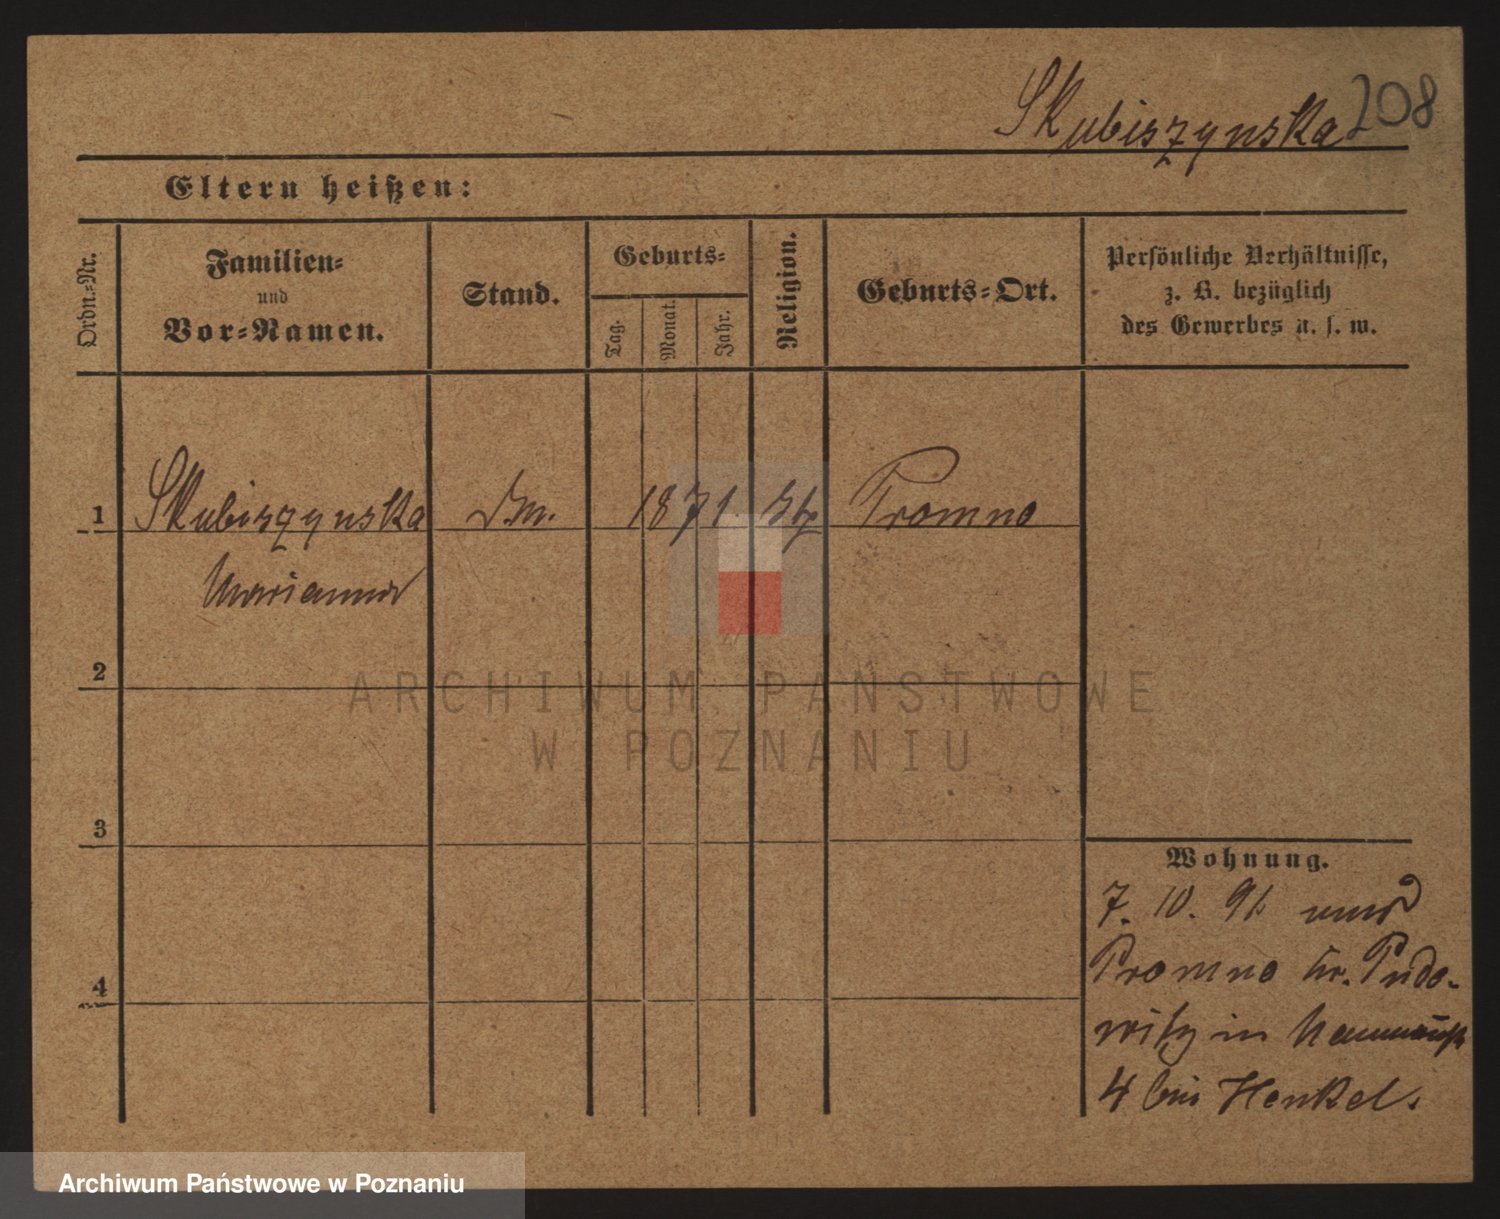 Skubiszynska 208
Eltern heißen:
Ordn.-Nr.
Familien-
und
Vor-Namen.
Stand.
Geburts-
Tag.
Monat.
Jahr.
Religion.
Geburts-Ort.
Persönliche Verhältnisse,
z. B. bezüglich
des Gewerbes u. s. w.
1 Skubiszynska 1871 Promno
Marianna
2
3
4
Wohnung.
7. 10. 91
Promno Kr. Pudo-
witz in
4 bei Henkel.
ARCHIWUM PAŃSTWOWE
W POZNANIU
Archiwum Państwowe w Poznaniu